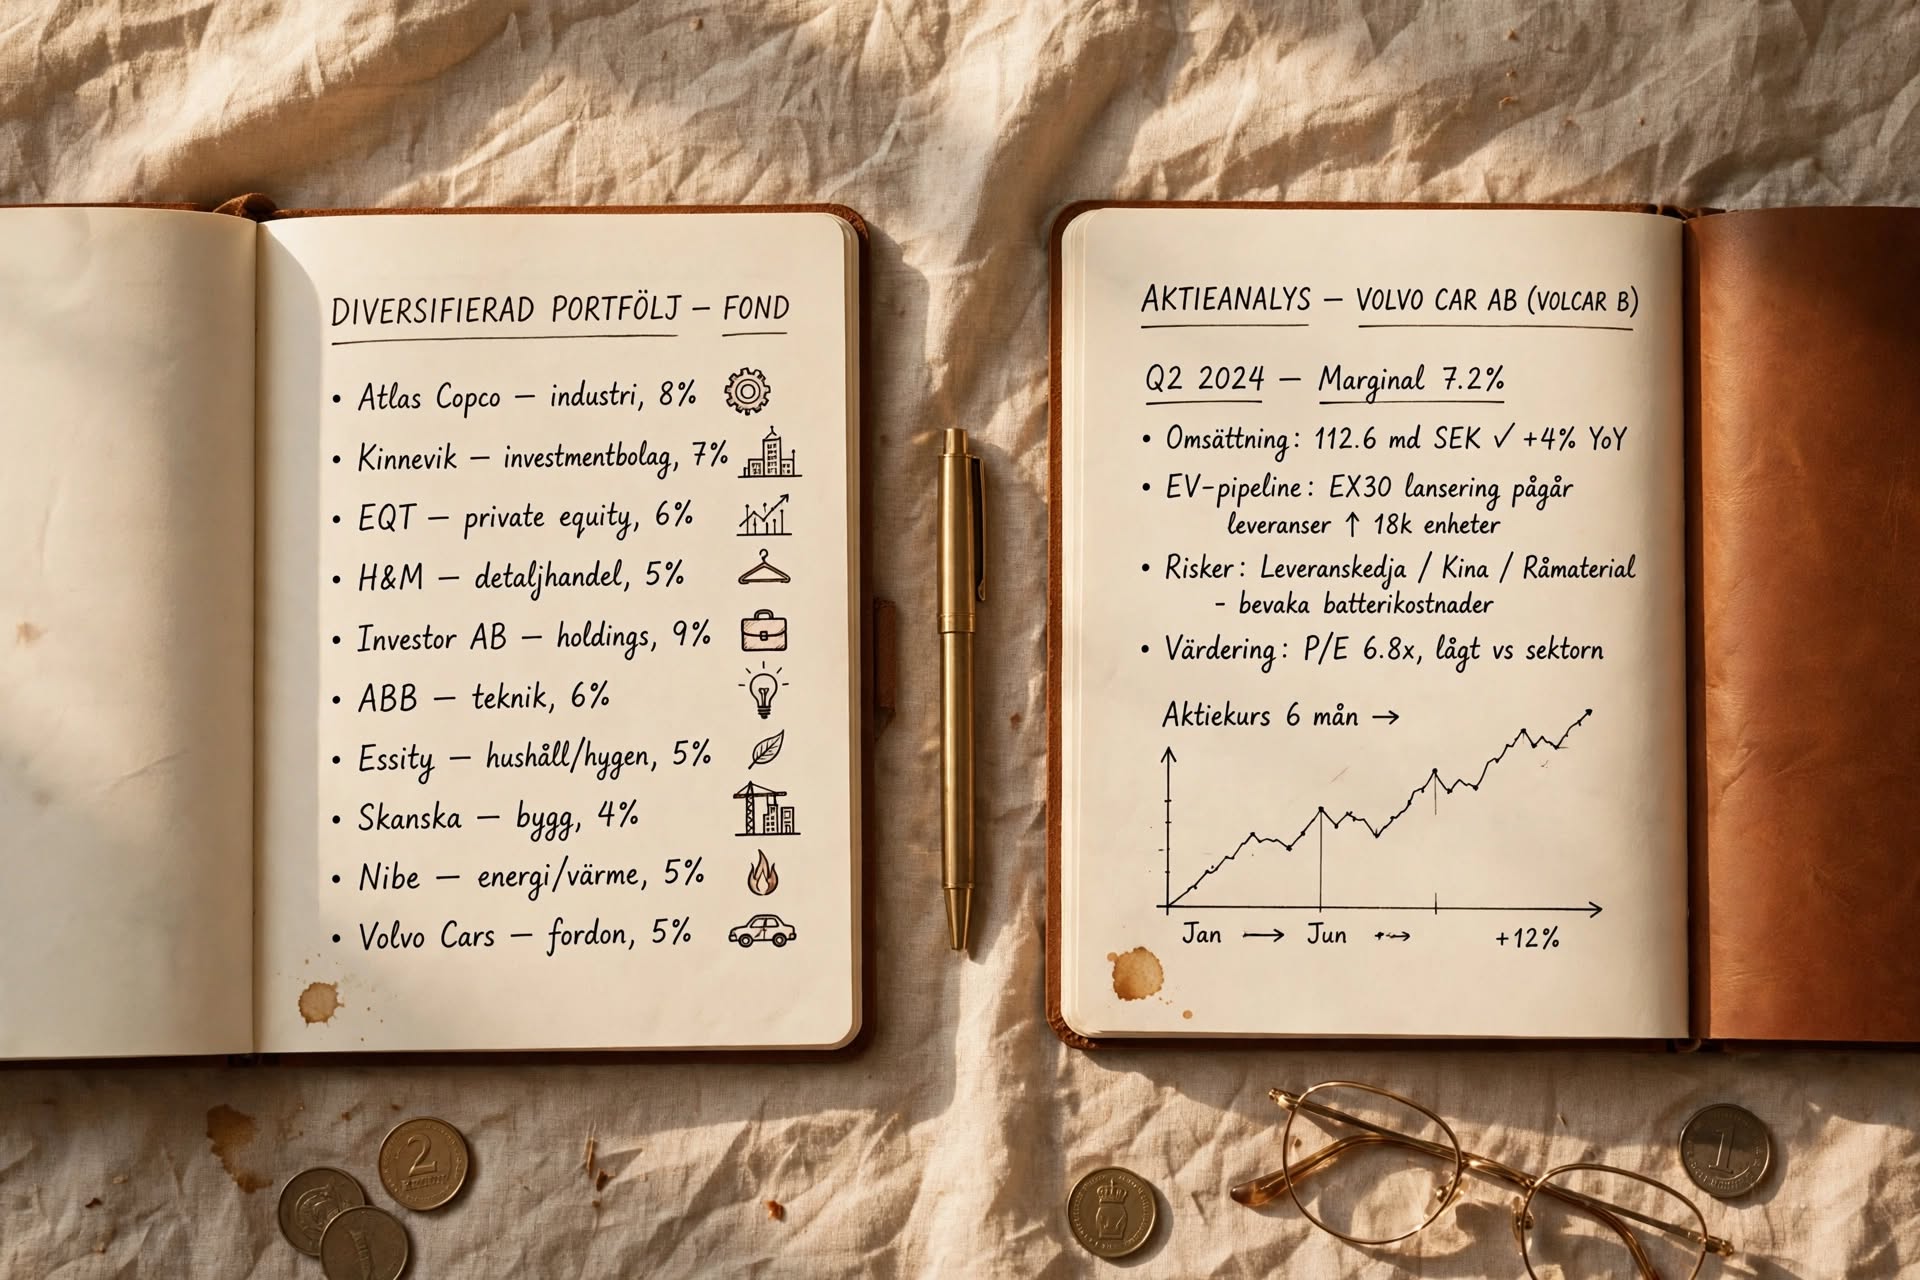 DIVERSIFIERAD PORTFÖLJ – FOND
• Atlas Copco – industri, 8%
• Kinnevik – investmentbolag, 7%
• EQT – private equity, 6%
• H&M – detaljhandel, 5%
• Investor AB – holdings, 9%
• ABB – teknik, 6%
• Essity – hushåll/hygen, 5%
• Skanska – bygg, 4%
• Nibe – energi/värme, 5%
• Volvo Cars – fordon, 5%
AKTIEANALYS – VOLVO CAR AB (VOLCAR B)
Q2 2024 – Marginal 7.2%
• Omsättning: 112.6 md SEK ✓ +4% YoY
• EV-pipeline: EX30 lansering pågår
leveranser ↑ 18k enheter
• Risker: Leveranskedja / Kina / Råmaterial
- bevaka batterikostnader
• Värdering: P/E 6.8x, lågt vs sektorn
Aktiekurs 6 mån →
Jan → Jun → +12%
2
1